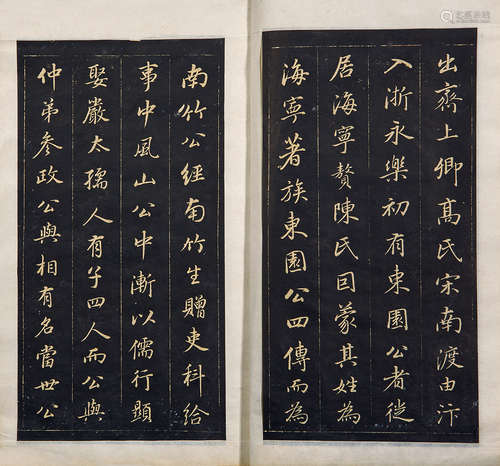 出齊上卿髙氏宋南渡由汴
入浙永樂初有東園公者徙
居海寧贅陳氏囙蒙其姓為
海寧著族東園公四傳而為
南竹公經南竹生贈吏科給
事中風山公中漸以儒行顯
娶嚴太孺人有子四人而公與
仲弟參政公與相有名當世公